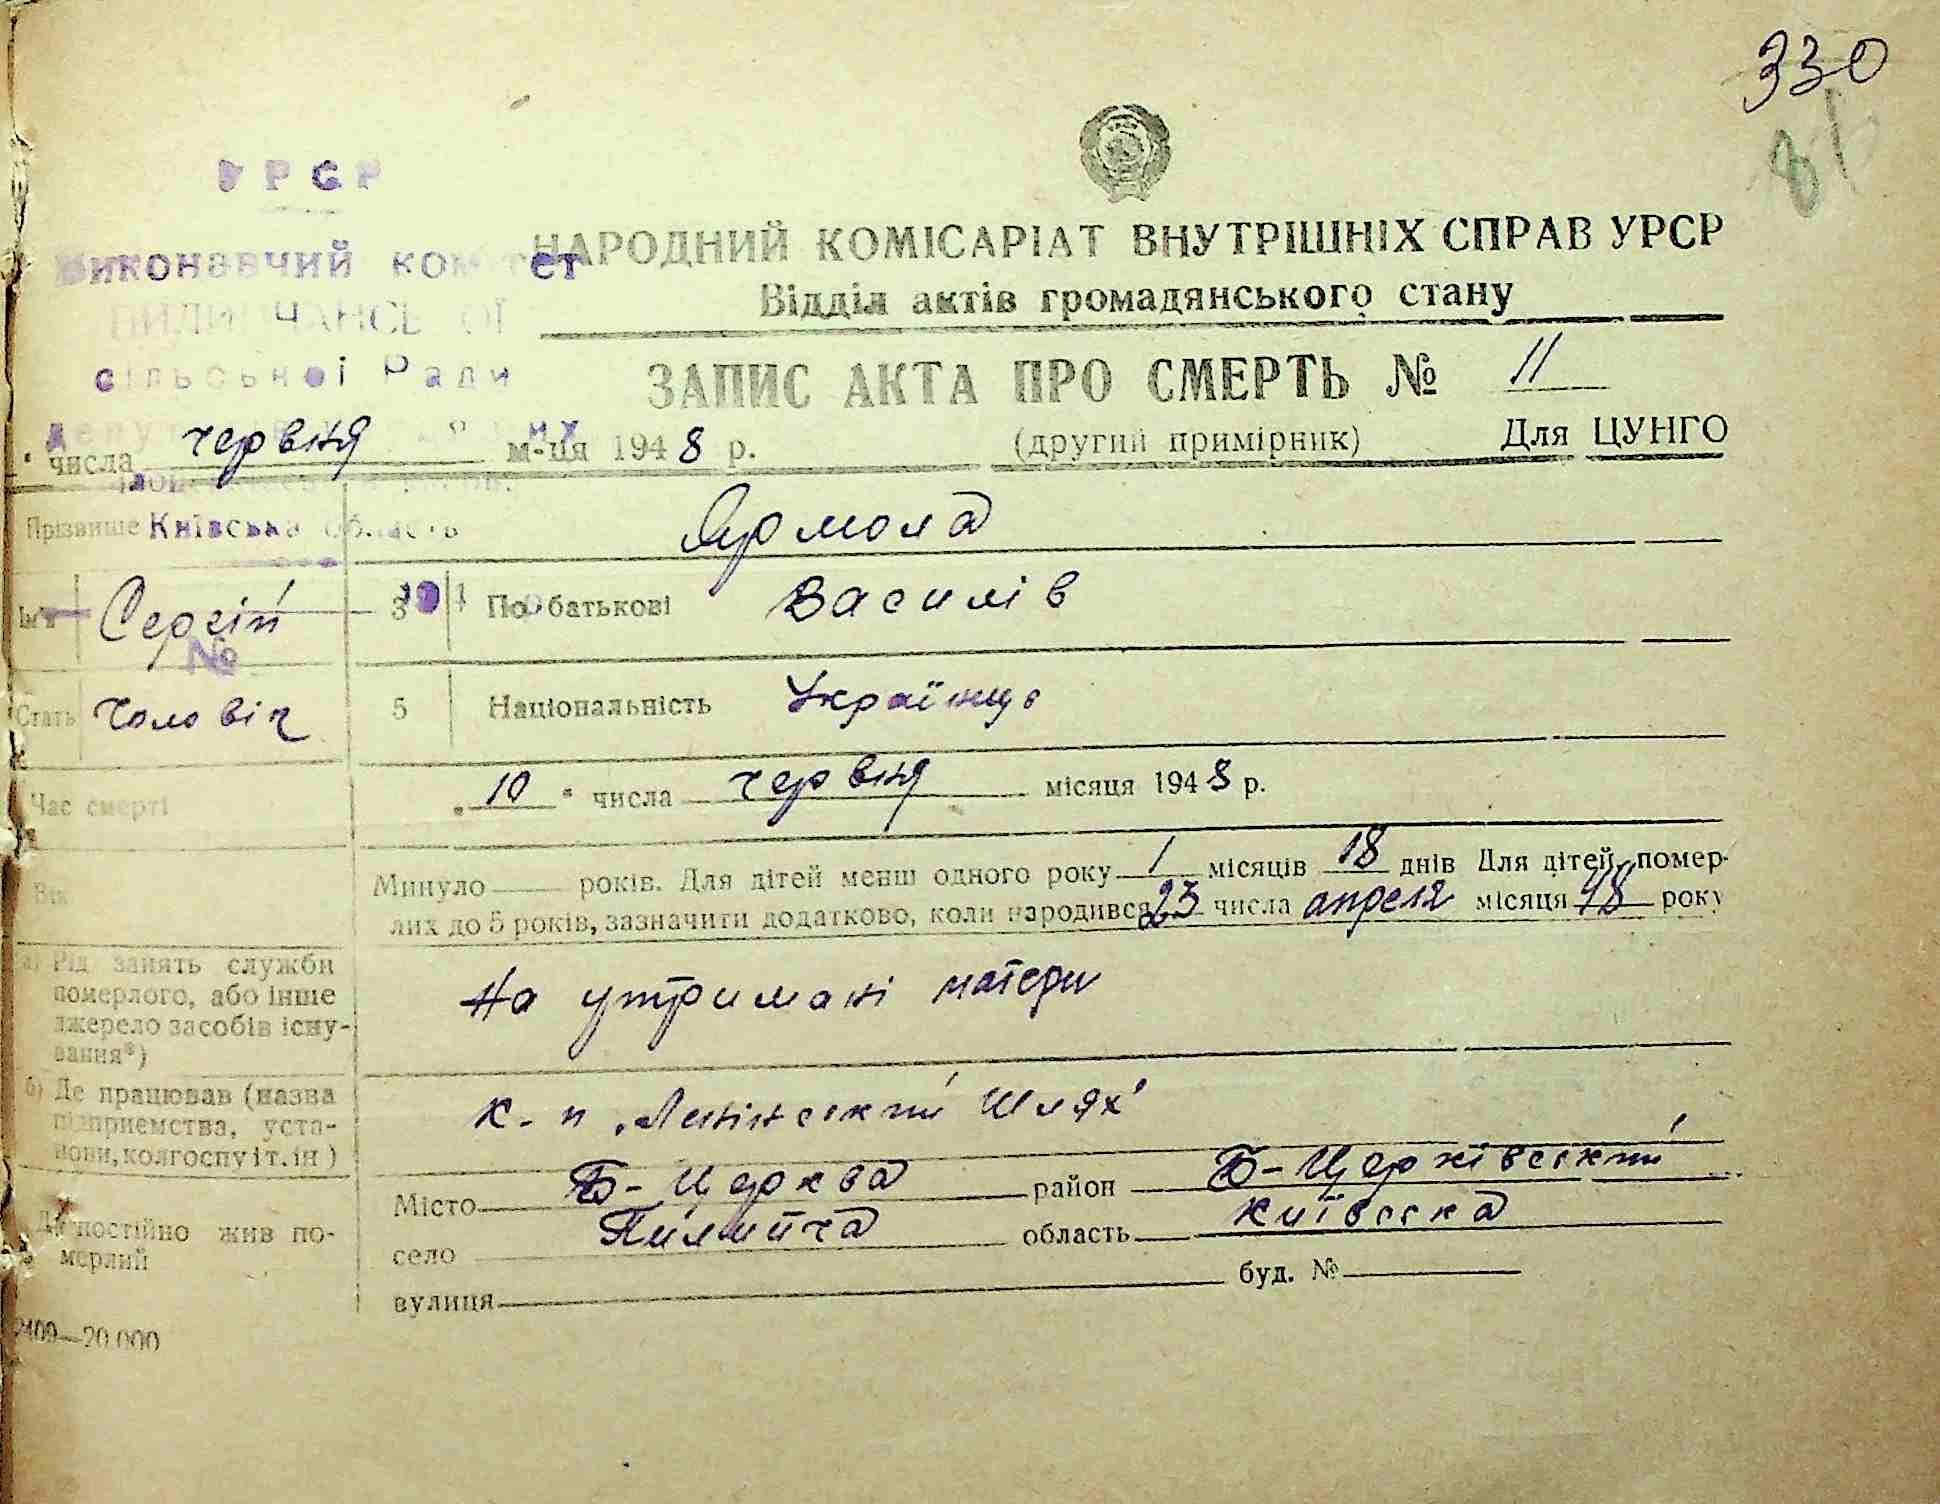 330
81
УРСР
Виконавчий комітет
сільської Ради
НАРОДНИЙ КОМІСАРІАТ ВНУТРІШНІХ СПРАВ УРСР
Відділ актів громадянського стану
ЗАПИС АКТА ПРО СМЕРТЬ № 11
числа червня м-ця 1948 р. (другий примірник) Для ЦУНГО
Київська область
Прізвище Ярмола
Ім'я Сергій 3 По батькові Василів
№
Стать Чоловіч 5 Національність Українце
Час смерті „10" числа червня місяця 1948 р.
Вік Минуло років. Для дітей менш одного року 1 місяців 18 днів Для дітей, помер-
лих до 5 років, зазначити додатково, коли народився 23 числа апреля місяця 48 року
а) Рід занять служби
померлого, або інше
джерело засобів існу-
вання*)
На утримані матери
б) Де працював (назва
підприємства, уста-
нови, колгоспу і т. ін)
к-п „Ленінський Шлях"
Де постійно жив по-
мерлий
Місто Б-Церква район Б-Церківський
село Пилипча область Київська
вулиця буд. №
2409—20.000